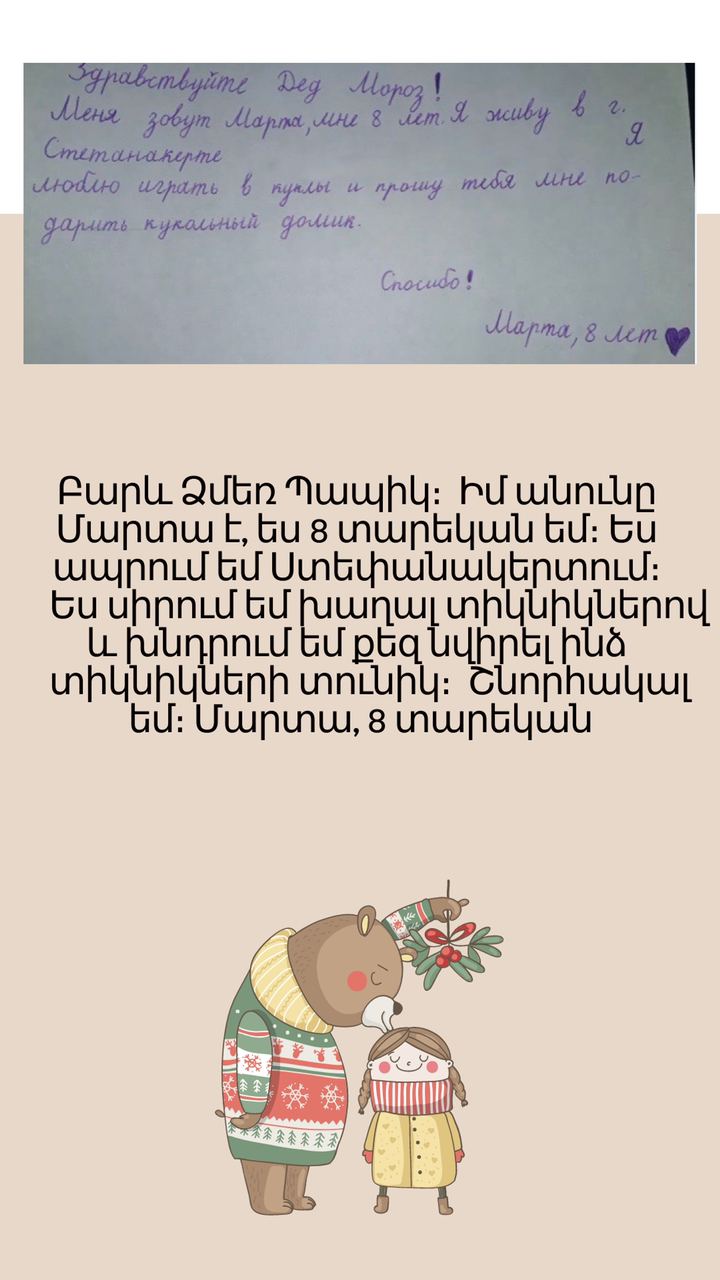 Здравствуйте Дед Мороз!
Меня зовут Марта, мне 8 лет. Я живу в г.
Стетанакерте Я
люблю играть в куклы и прошу тебя мне по-
дарить кукольный домик.
Спосибо!
Марта, 8 лет
Բարև Ձմեռ Պապիկ։ Իմ անունը
Մարտա է, ես 8 տարեկան եմ։ Ես
ապրում եմ Ստեփանակերտում։
Ես սիրում եմ խաղալ տիկնիկներով
և խնդրում եմ քեզ նվիրել ինձ
տիկնիկների տունիկ։ Շնորհակալ
եմ։ Մարտա, 8 տարեկան